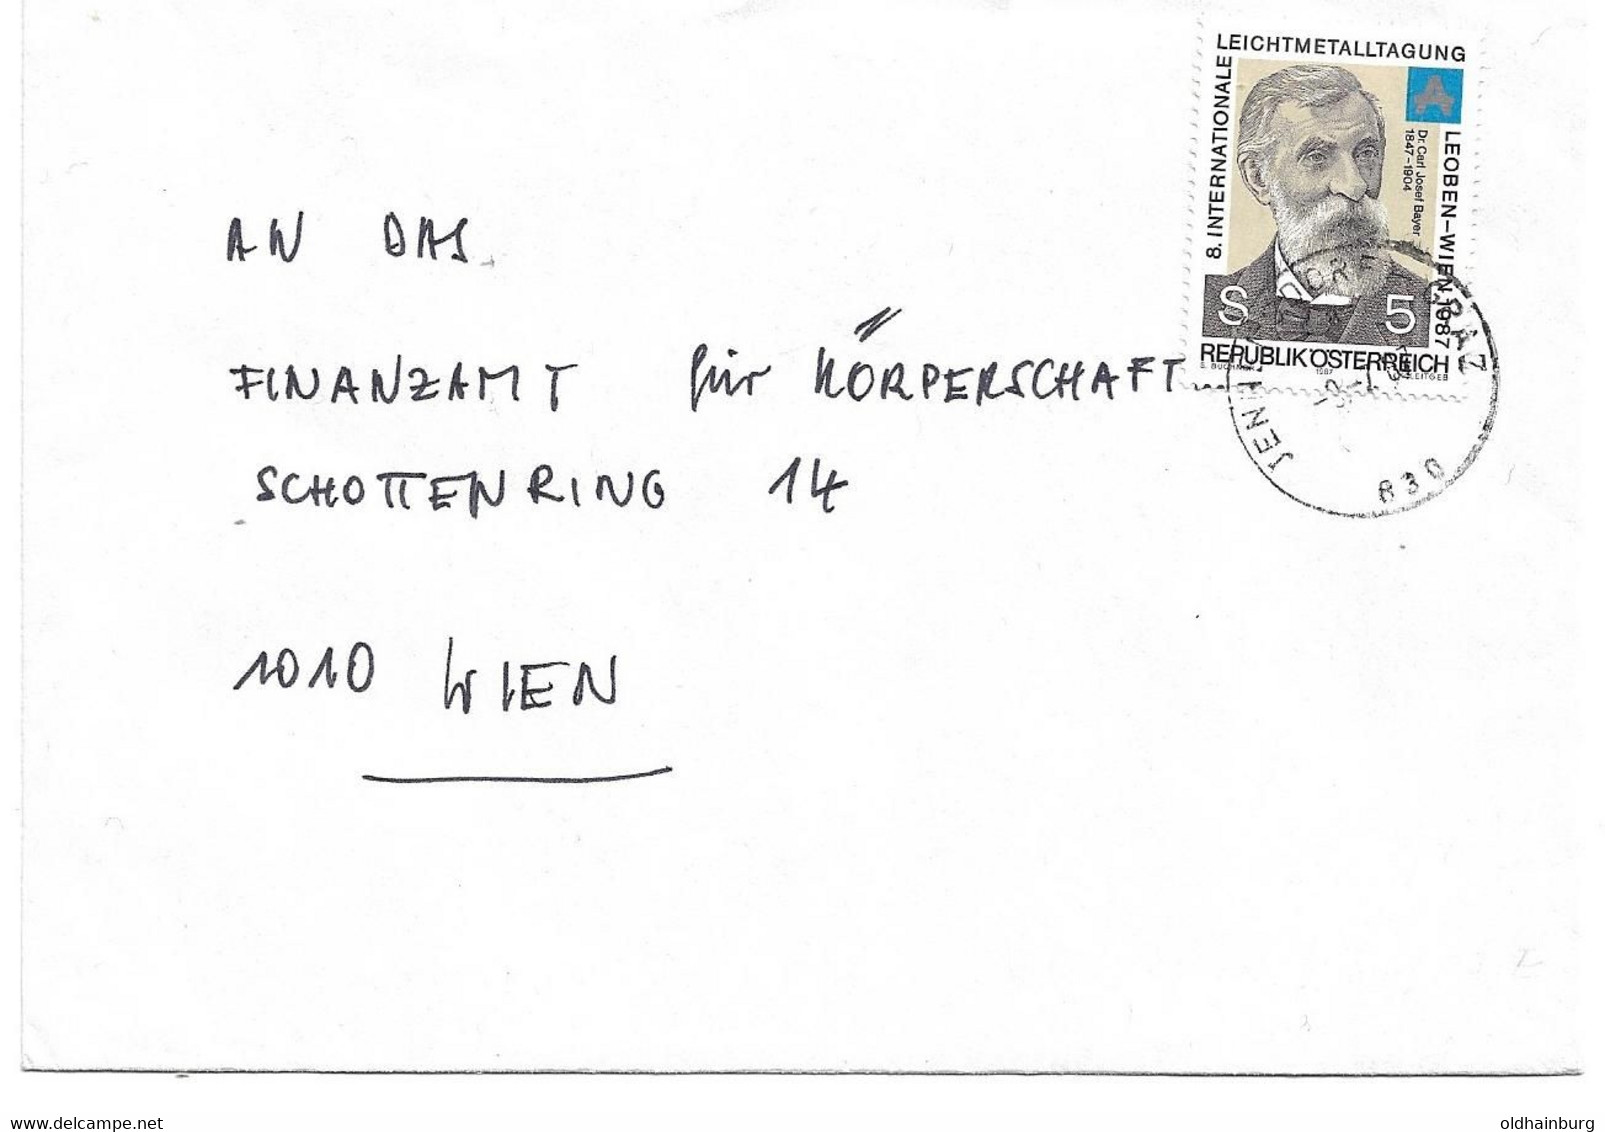 8. INTERNATIONALE LEICHTMETALLTAGUNG LEOBEN-WIEN 1987
A
Dr. Carl Josef Bayer
1847-1904
S 5
REPUBLIK ÖSTERREICH
1987
LEITGEB
GRAZ
AN DAS
FINANZAMT für KÖRPERSCHAFT
SCHOTTENRING 14
1010 WIEN
oldhainburg